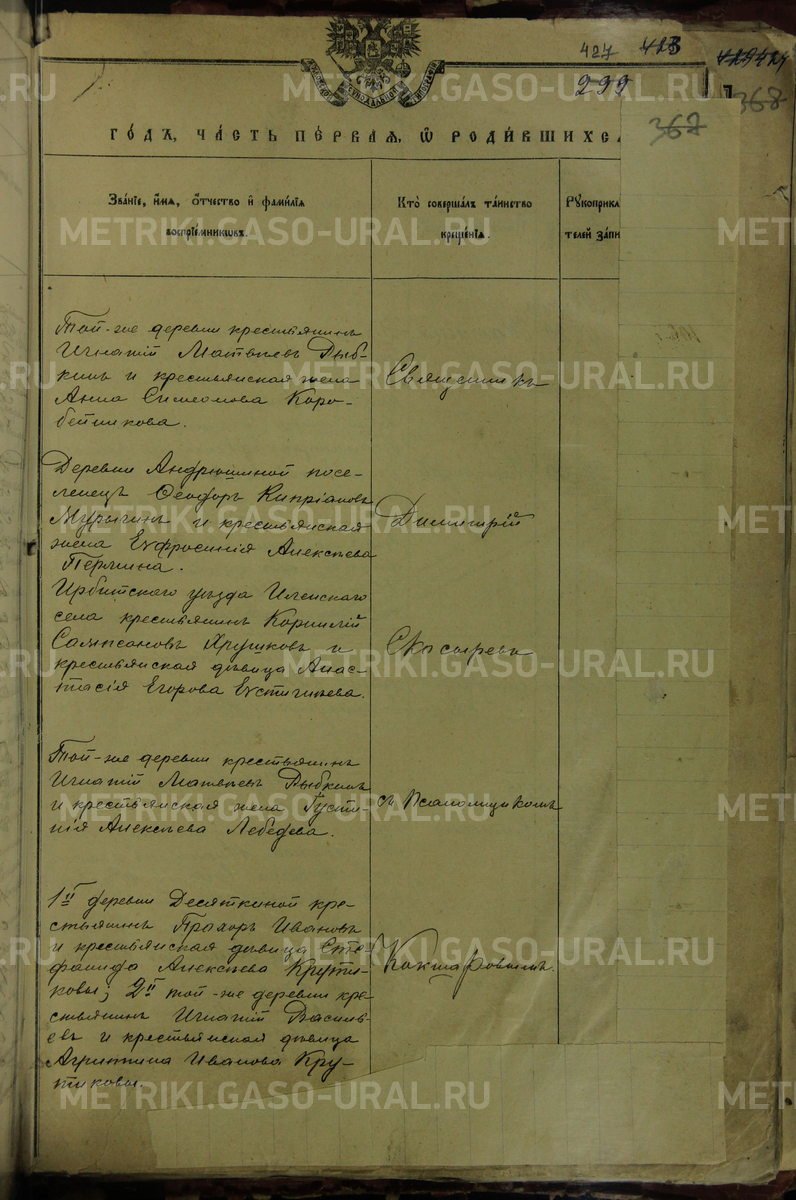 427 423 429 424
299
367 368
годъ, часть первая, ѡ родившихся
Званіе, имя, отчество и фамилія
воспріемниковъ.
Кто совершалъ таинство
крещенія.
Рукоприкл
телей запи
Той-же деревни крестьянинъ
Игнатій Матвѣевъ Рыб-
кинъ и крестьянская жена
Анна Симеонова Коро-
бейникова.
Деревни Андрюшиной посе-
ленецъ Ѳеодоръ Кипріановъ
Мурычинъ и крестьянская
жена Евфросинія Алексѣева
Першина.
Ирбитскаго уѣзда Иленскаго
села крестьянинъ Корнилій
Сампсоновъ Хрушковъ и
крестьянская дѣвица Анас-
тасія Егорова Евстигнѣева.
Той-же деревни крестьянинъ
Игнатій Матвѣевъ Рыбкинъ
и крестьянская жена Густи-
нія Алексѣева Лебедева.
1й деревни Десяткиной кре-
стьянинъ Прохоръ Ивановъ
и крестьянская дѣвица Сте-
фанида Алексѣева Крути-
ковы; 2й той-же деревни кре-
стьянинъ Игнатій Василь-
евъ и крестьянская дѣвица
Агриппина Иванова Кру-
тиковы.
Священникъ
Димитрій
Скосыревъ
съ Псаломщикомъ
Кокшаровымъ.
METRIKI.GASO-URAL.RU